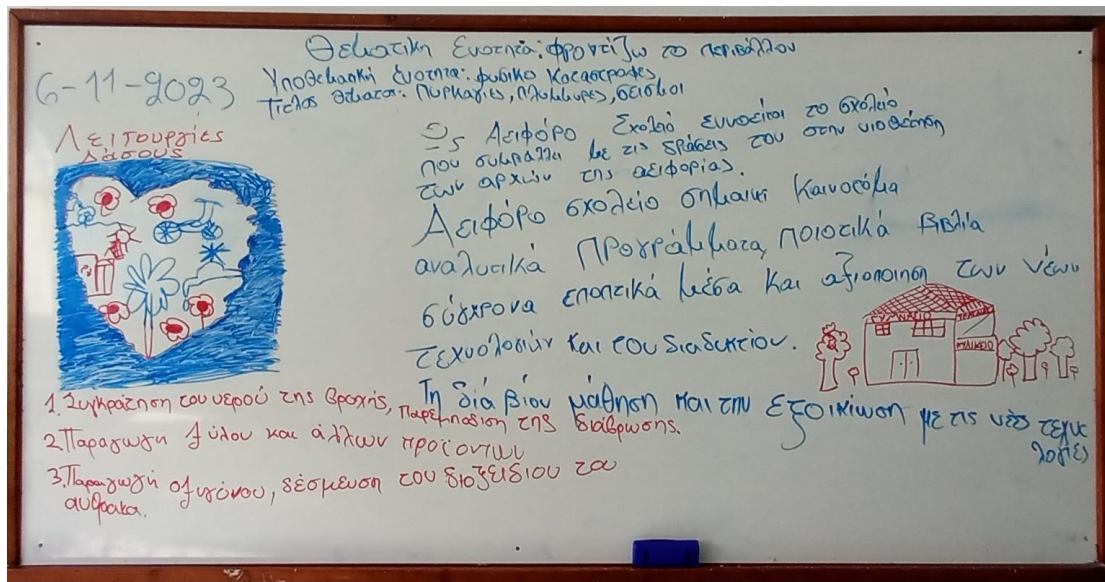 Θεματικη Ενοτητα: φροντίζω το περιβάλλου
6-11-2023
Υποθεματική ένοτητα: φυσικο Καταστροφες
Τιτλος θέματος: Πυρκαγιες, πλυμμυρες, σεισμοι
Λειτουργίες
Δάσους
Ως Αειφόρο Σχολειό εννοείται το σχολείο,
που συμβάλλει με τις δράσεις του στην υιοθέτηση
των αρχών της αειφορίας.
Αειφόρο σχολείο σημαινει Καινοτόμα
αναλυτικά Προγράμματα, ποιοτικά βιβλία
σύγχρονα εποπτικά μέσα και αξιοποιηση των νέων
τεχνολογιών και του διαδυκτίου.
Τη διά βίου μάθηση και την εξοικίωση με τις νέες τεχνο
λογίες
ΚΥΛΙΚΕΙΟ
1. Συγκράτηση του νερού της βροχής, παρεμπόδιση της διάβρωσης.
2. Παραγωγη ξύλου και άλλων προϊοντων
3. Παραγωγή οξυγόνου, δέσμευση του διοξειδιου του
ανθρακα.